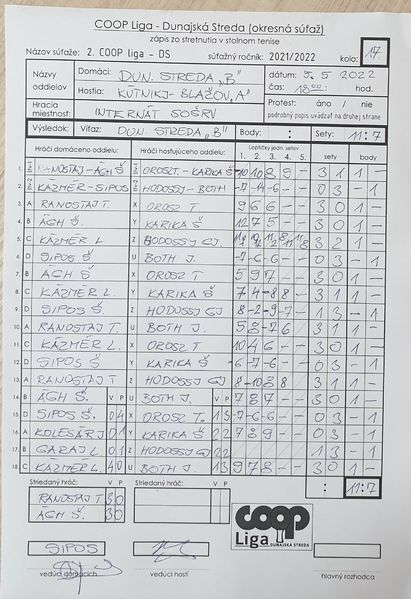 COOP Liga - Dunajská Streda (okresná súťaž)
zápis zo stretnutia v stolnom tenise
Názov súťaže: 2. COOP liga - DS súťažný ročník: 2021/2022 kolo: 17
Názvy oddielov Domáci: DUN. STREDA „B" dátum: 5. 5 2022
Hostia: KÚTNIKJ - BLAČOV „A" čas: 18:00 hod.
Hracia miestnosť: INTERNÁT SOŠRV Protest: áno / nie
podrobný popis uvádzať na druhej strane
Výsledok: Víťaz: DUN. STREDA „B" Body: : Sety: 11:7
Hráči domáceho oddielu: Hráči hosťujúceho oddielu: Loptičky jedn. setov: sety body
1. 2. 3. 4. 5.
1. RANOSTAJ - ÁGH Š OROSZT - KARIKA Š -10 10 8 9 - 3 1 1 -
2. KÁZMÉR - SIPOS HODOSSY - BOTH -7 -14 -6 - - 0 3 - 1
3. A RANOSTAJ T X OROSZ T 9 6 6 - - 3 0 1 -
4. B ÁGH Š Y KARIKA Š 12 7 5 - - 3 0 1 -
5. C KÁZMÉR L. Z HODOSSY GJ. 3 2 1 -
6. D SIPOS Š U BOTH J. -7 -6 -6 - - 0 3 - 1
7. B ÁGH Š X OROSZ T 5 9 7 - - 3 0 1 -
8. C KÁZMÉR L. Y KARIKA Š 7 4 -8 8 - 3 1 1 -
9. D SIPOS Š Z HODOSSY GJ 8 -2 -9 -7 - 1 3 - 1
10. A RANOSTAJ T. U BOTH J. 5 8 -7 6 3 1 1 -
11. C KÁZMÉR L. X OROSZ T 10 4 6 - - 3 0 1 -
12. D SIPOS Š Y KARIKA Š -6 -7 -6 - - 0 3 - 1
13. A RANOSTAJ T Z HODOSSJ GJ 8 -10 8 8 - 3 1 1 -
14. B ÁGH Š V P U BOTH J. V P 7 8 7 - - 3 0 1 -
15. D SIPOS Š. 0 4 X OROSZ T. 1 3 -7 -6 -6 - - 0 3 - 1
16. A KOLESÁR J 0 1 Y KARIKA Š 2 2 7 8 9 - - 0 3 - 1
17. B GARAJ L. 0 1 Z HODOSSY GJ 2 2 0 3 - 1
18. C KÁZMÉR L. 4 0 U BOTH J. 1 3 9 7 8 - - 3 0 1 -
Striedaný hráč: V P Striedaný hráč: V P : 11:7
RANOSTAJ T. 3 0
ÁGH Š. 3 0
COOP
Liga DUNAJSKÁ STREDA
SIPOS
vedúci domácich vedúci hostí hlavný rozhodca